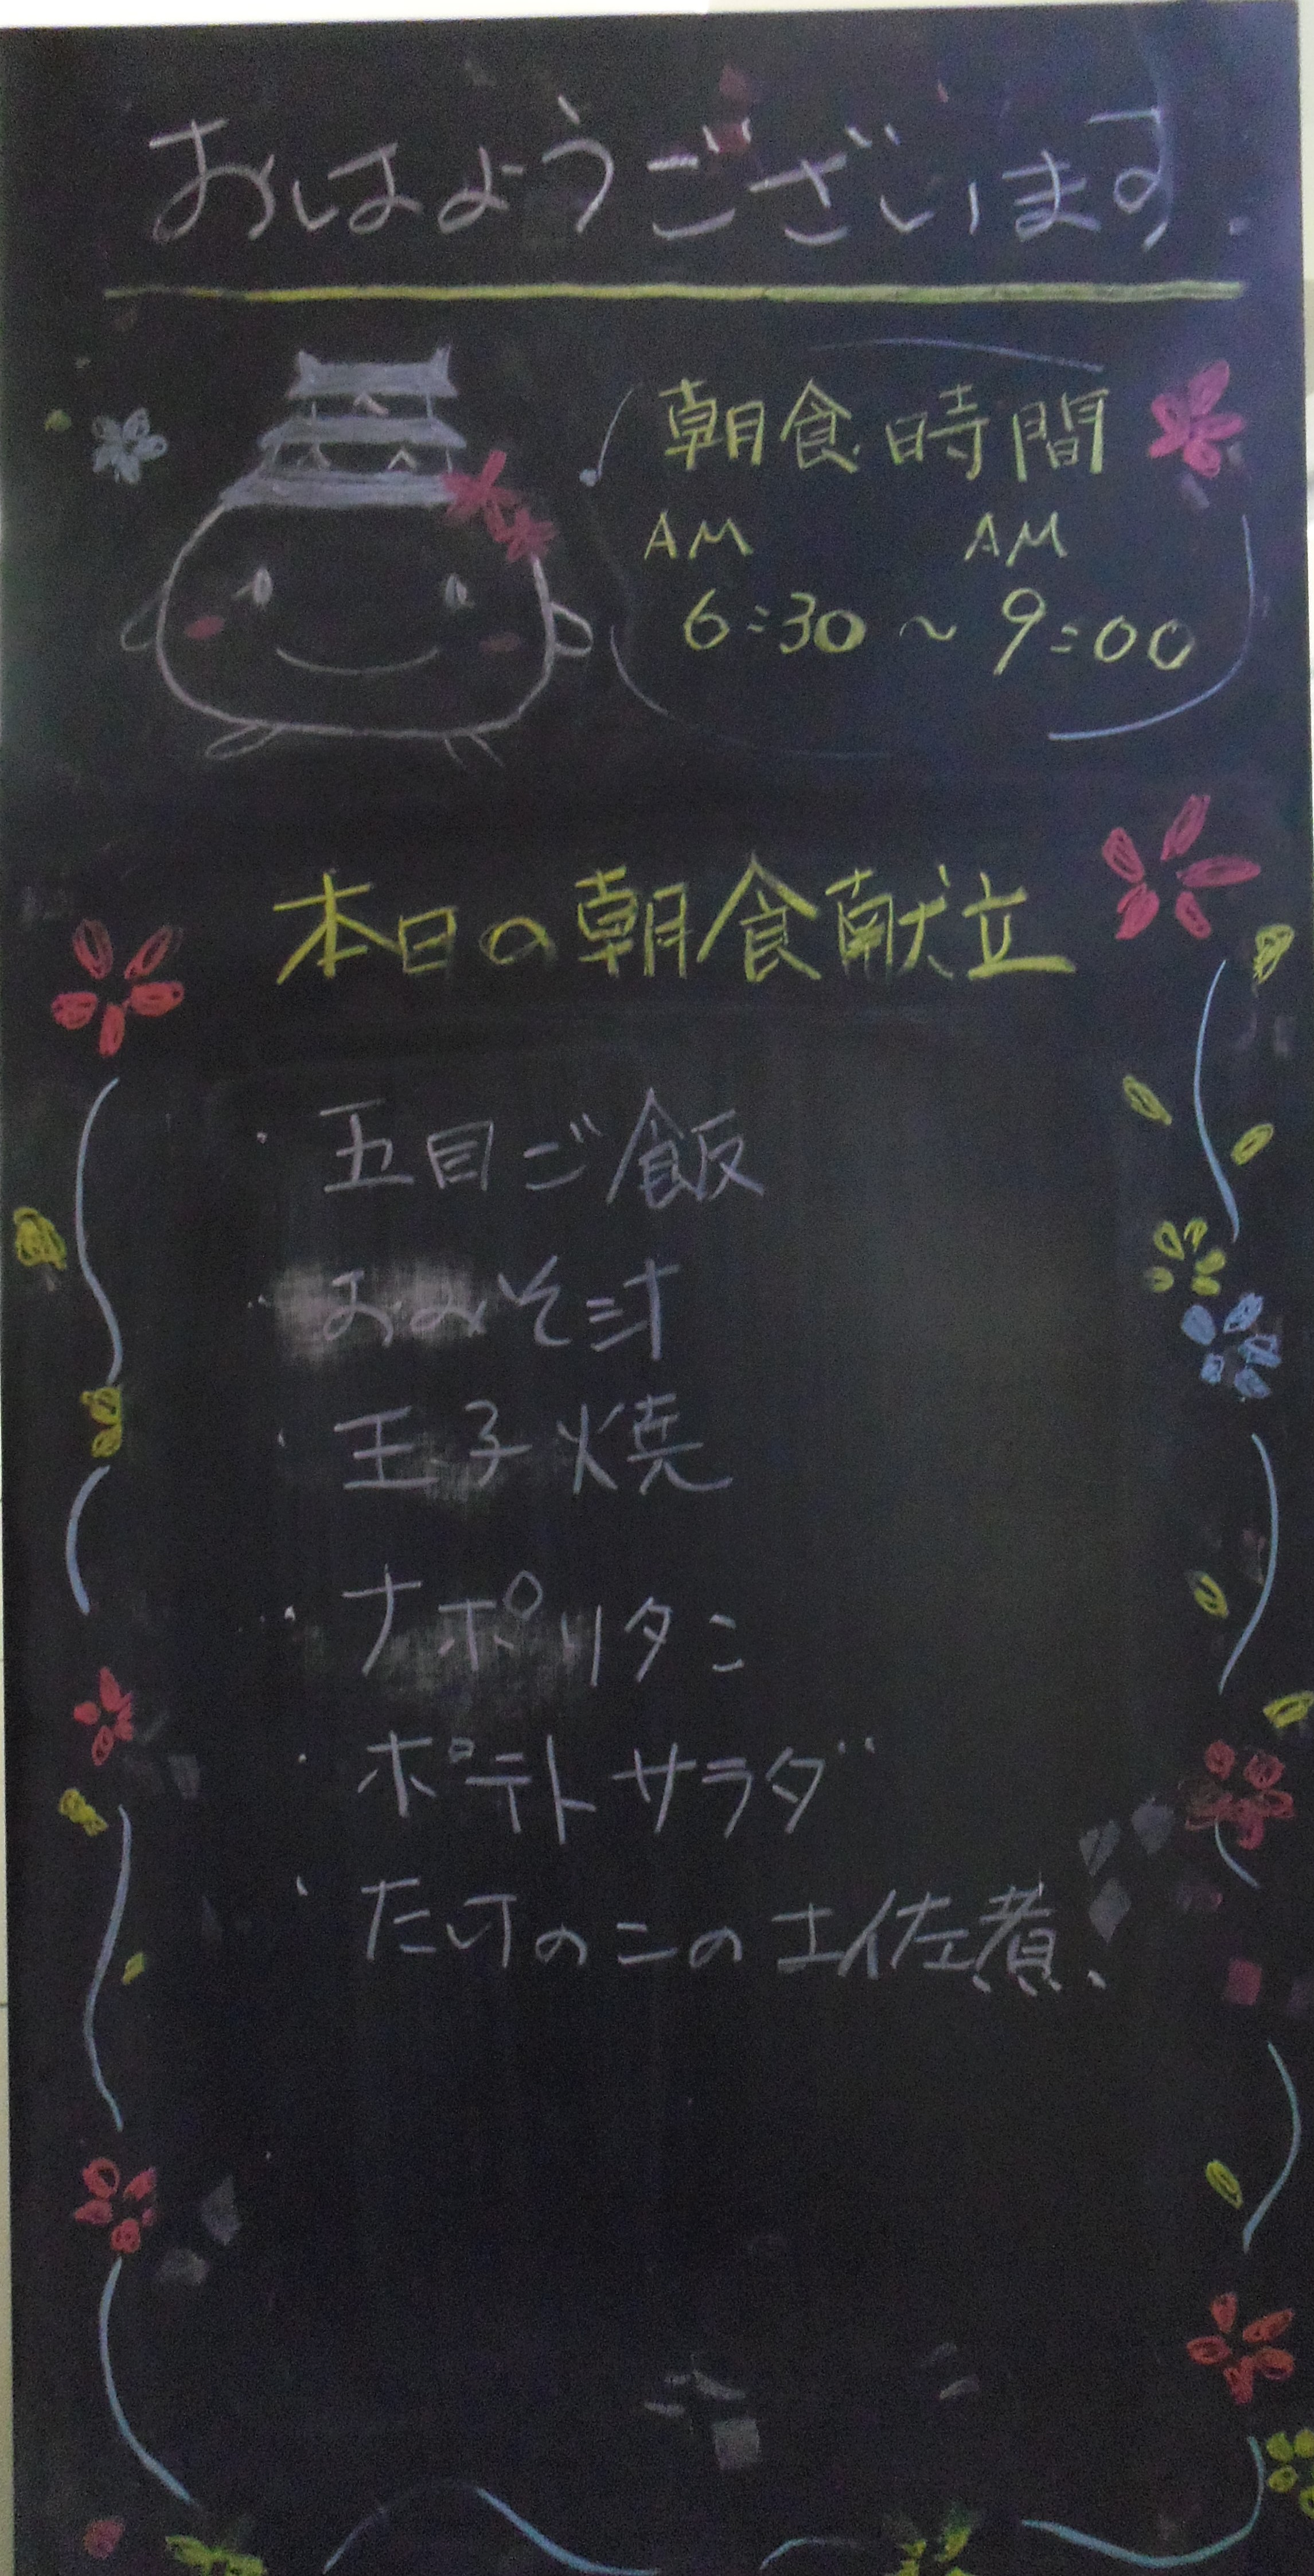 おはようございます.
朝食時間
AM AM
6:30～9:00
本日の朝食献立
・五目ご飯
・おみそ汁
・玉子焼
・ナポリタン
・ポテトサラダ
・たけのこの土佐煮